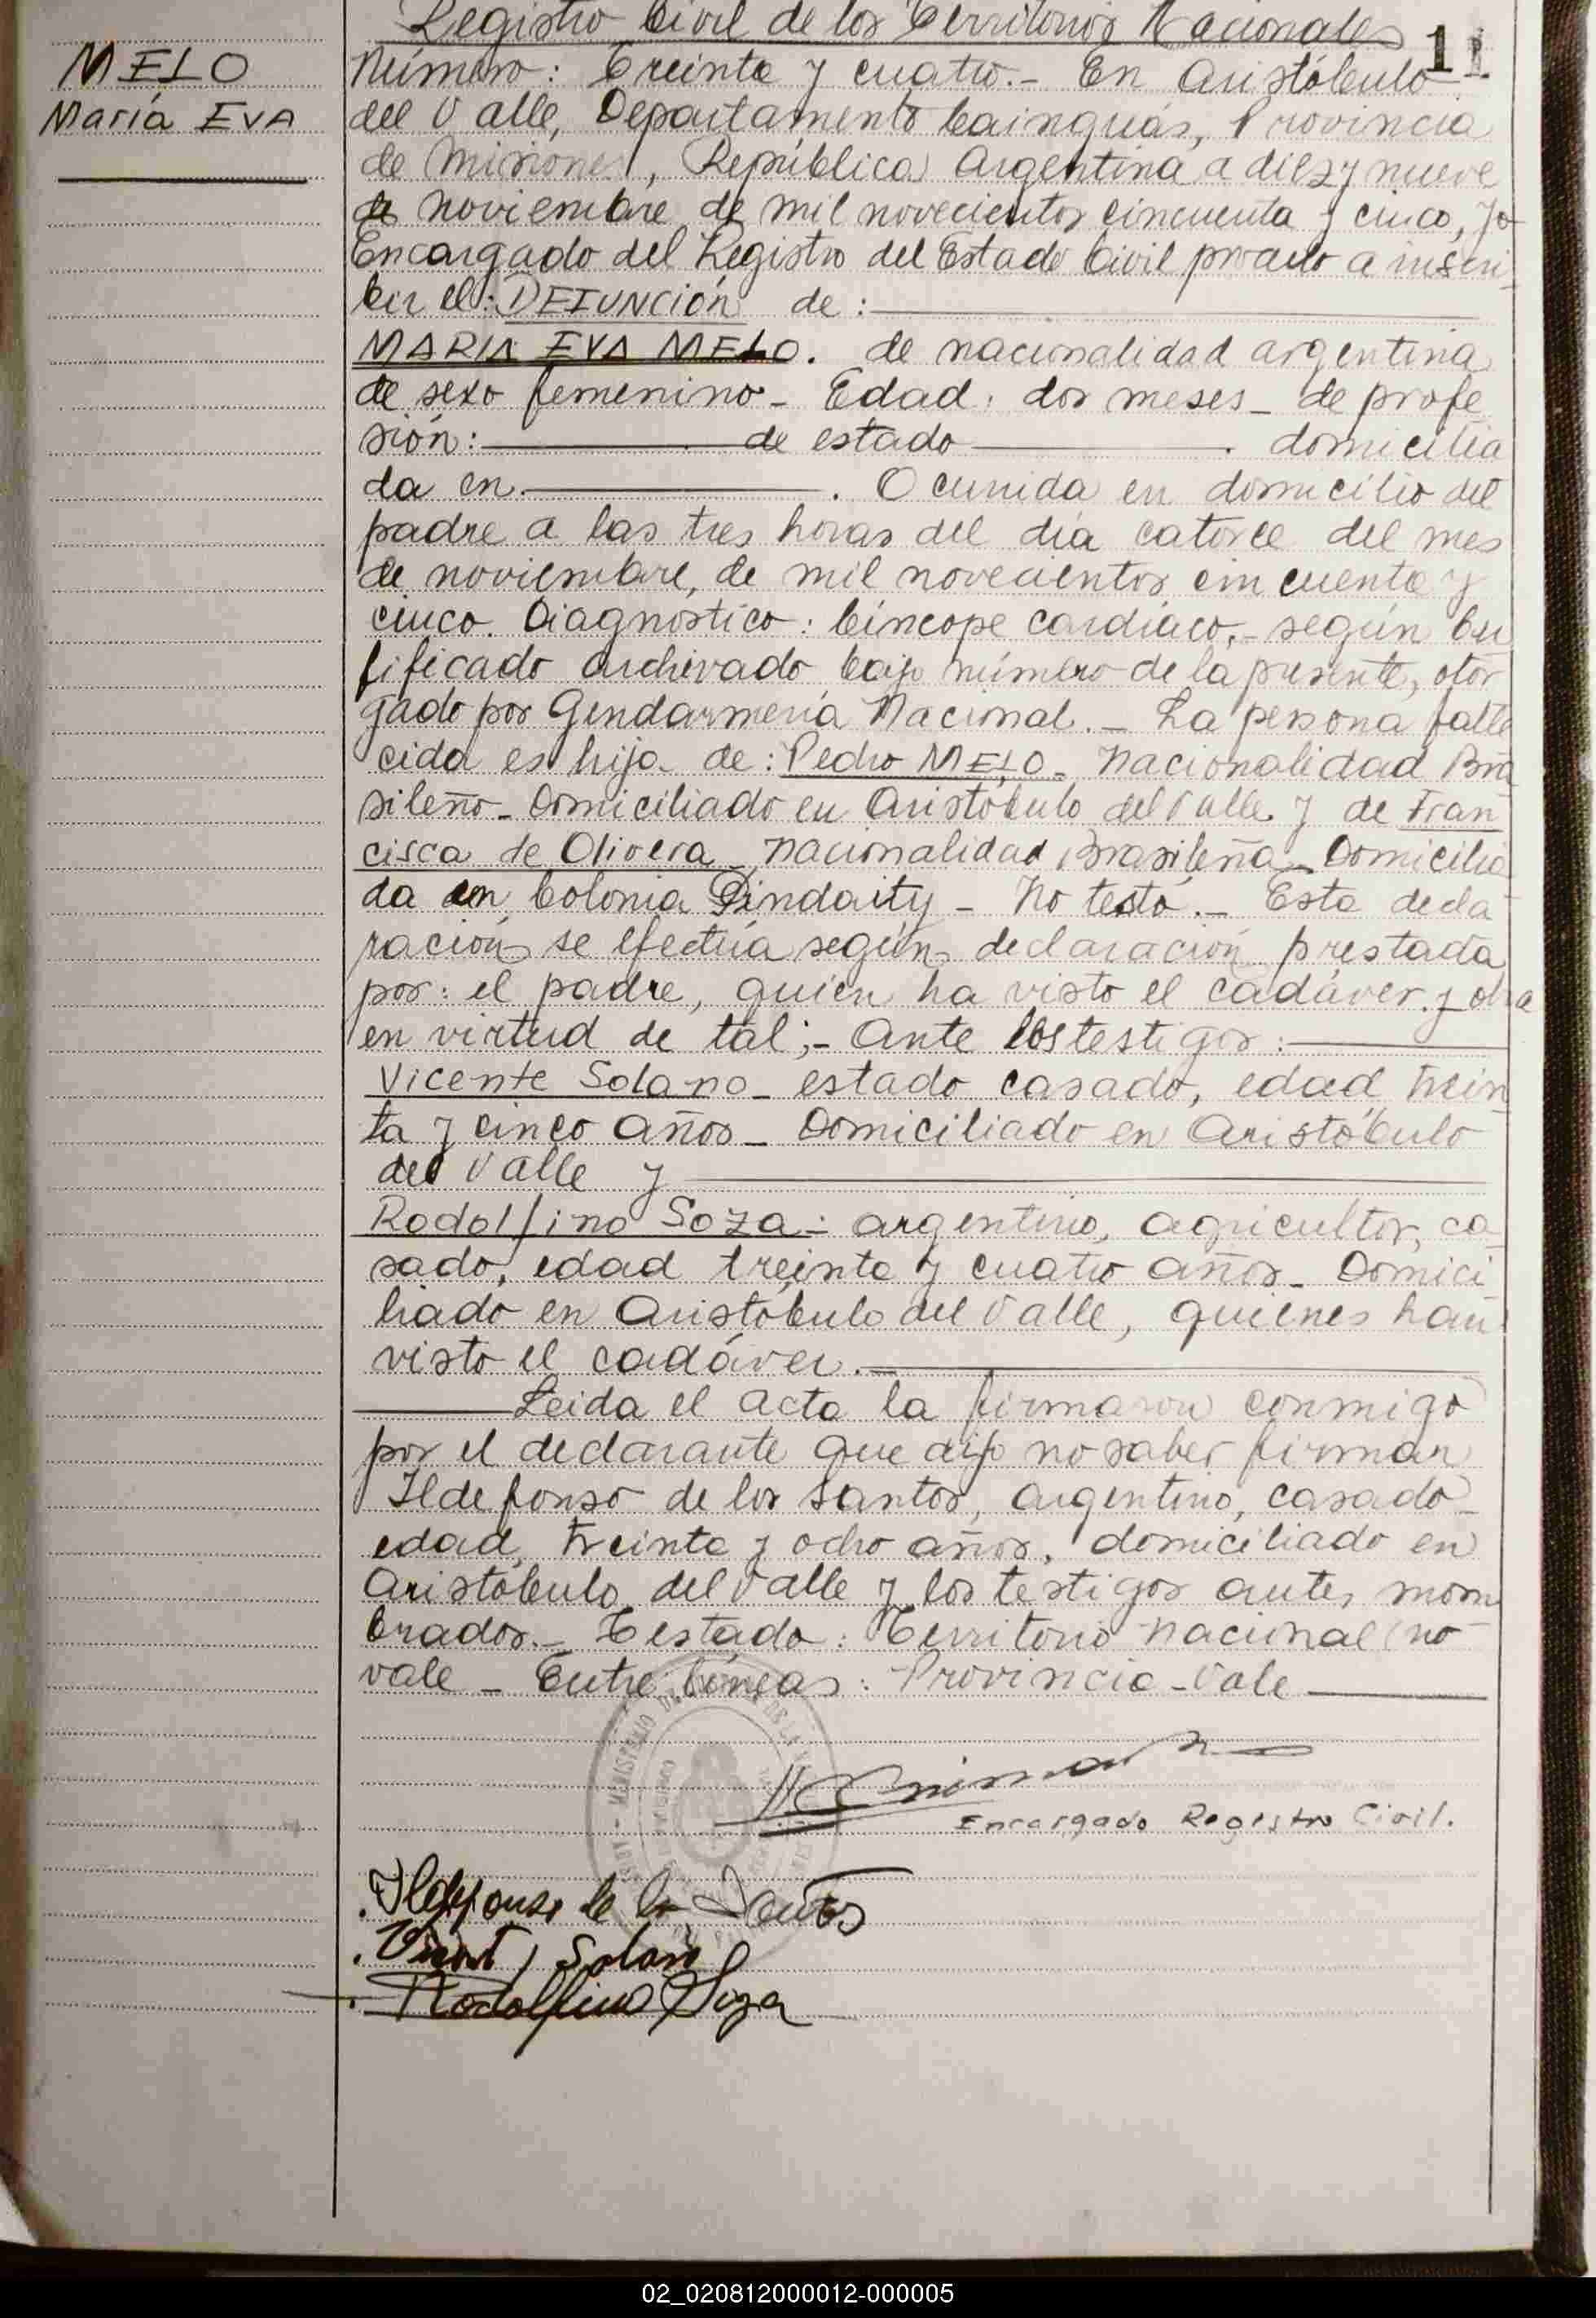 Registro Civil de los Territorios Nacionales
11
MELO
María EVA
Número: Treinta y cuatro.- En Aristóbulo
del Valle, Departamento Cainguás, Provincia
de Misiones, República Argentina a diez y nueve
de noviembre de mil novecientos cincuenta y cinco, yo
Encargado del Registro del Estado Civil procedo a inscri
bir el: DEFUNCIÓN de:
MARIA EVA MELO. de nacionalidad argentina
de sexo femenino - Edad: dos meses - de profe
sión: de estado . domicilia
da en . Ocurrida en domicilio del
padre a las tres horas del día catorce del mes
de noviembre, de mil novecientos cincuenta y
cinco. Diagnóstico: Síncope cardíaco,- según Cer
tificado archivado bajo número de la presente, otor
gado por Gendarmería Nacional.- La persona falle
cida es hija de: Pedro MELO - nacionalidad Bra
sileño - Domiciliado en Aristóbulo del Valle y de Fran
cisca de Olivera - nacionalidad Brasileña - Domicilia
da en Colonia Pindaity - No testó.- Esta decla
ración se efectúa según declaración prestada
por: el padre, quien ha visto el cadáver y obra
en virtud de tal;- Ante los testigos:
Vicente Solano - estado casado, edad trein
ta y cinco años - Domiciliado en Aristóbulo
del Valle y
Rodolfino Soza: argentino, agricultor, ca
sado, edad treinta y cuatro años - Domici
liado en Aristóbulo del Valle, quienes han
visto el cadáver.-
Leida el acta la firmaron conmigo
por el declarante que dijo no saber firmar
Ildefonso de los Santos, argentino, casado -
edad, treinta y ocho años, domiciliado en
Aristóbulo del Valle y los testigos antes nom
brados.- Testado: Territorio nacional (no
vale - Entre líneas: Provincia - Vale
Encargado Registro Civil.
Ildefonso de los Santos
Vicente Solano
Rodolfino Soza
02_020812000012-000005